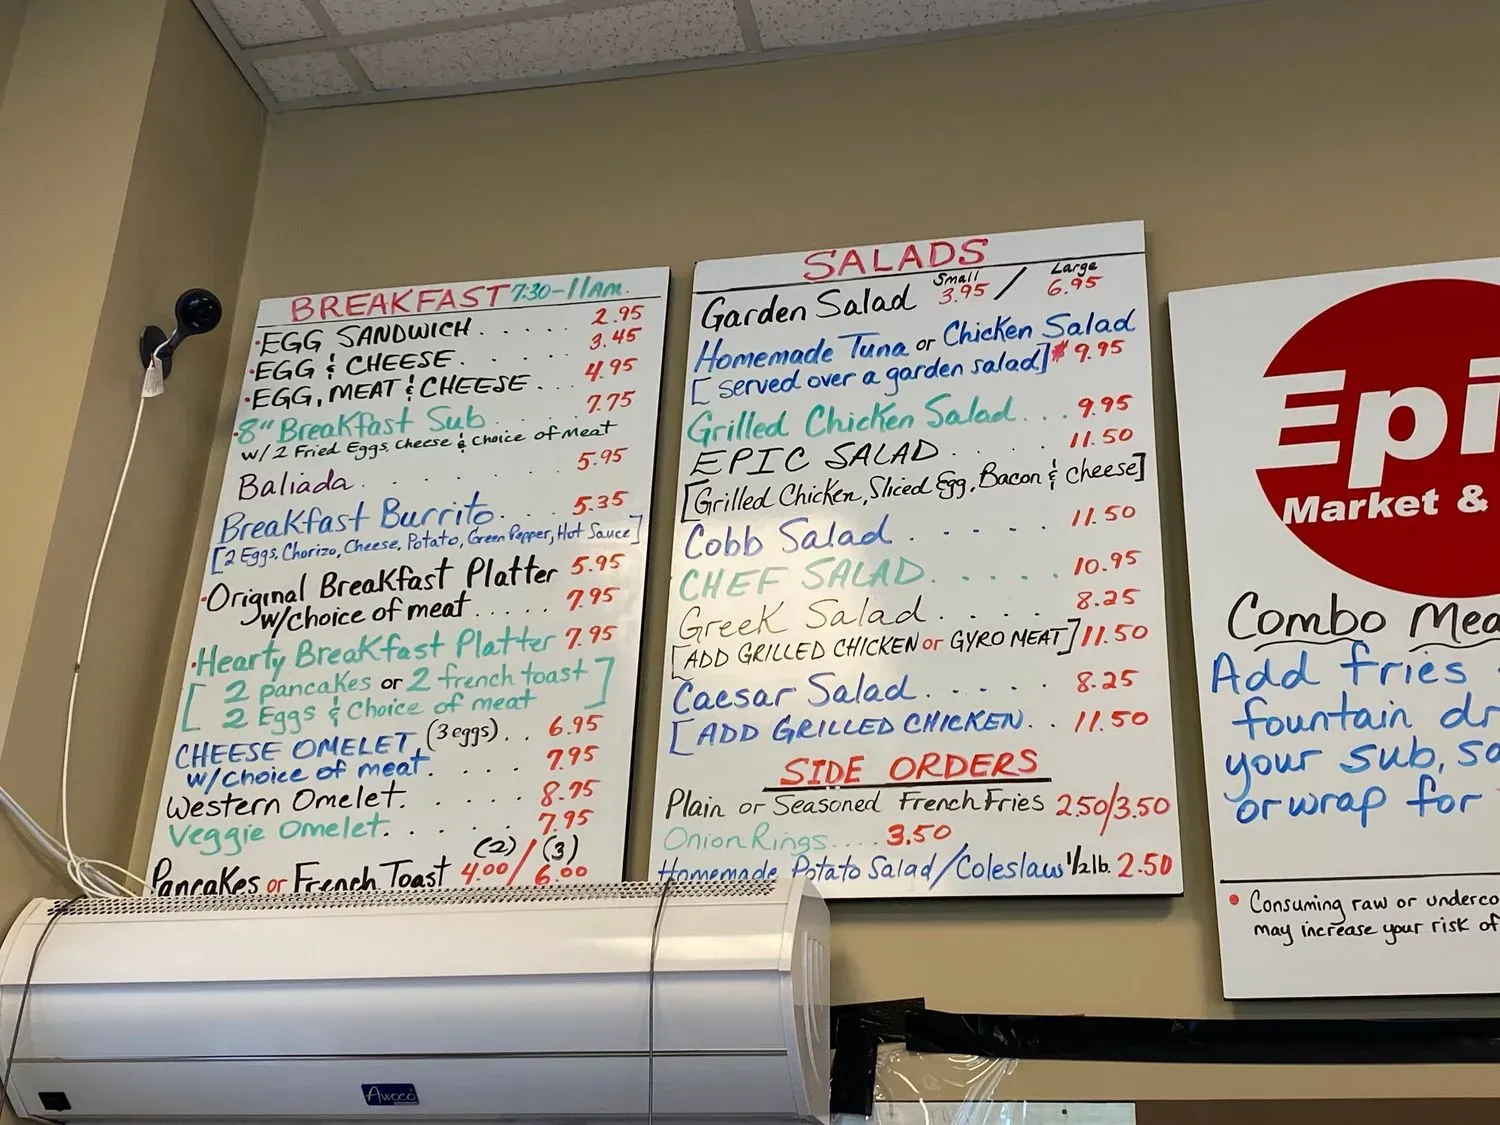 BREAKFAST 7:30-11AM.
• EGG SANDWICH . . . . . 2.95
• EGG & CHEESE. . . . . 3.45
• EGG, MEAT & CHEESE . . . 4.95
• 8" Breakfast Sub . . . . 7.75
w/ 2 Fried Eggs, cheese & choice of meat
Baliada . . . . . 5.95
Breakfast Burrito. . . 5.35
[2 Eggs, Chorizo, Cheese, Potato, Green Pepper, Hot Sauce]
• Original Breakfast Platter 5.95
w/choice of meat . . . . . 7.95
• Hearty Breakfast Platter 7.95
[2 pancakes or 2 french toast
2 Eggs & Choice of meat]
CHEESE OMELET (3 eggs) . . 6.95
w/choice of meat. . . . . 7.95
Western Omelet. . . . . . 8.95
Veggie Omelet. . . . . . 7.95
(2) / (3)
Pancakes or French Toast 4.00/6.00
SALADS
Small / Large
Garden Salad 3.95 / 6.95
Homemade Tuna or Chicken Salad
[served over a garden salad] $9.95
Grilled Chicken Salad . . . 9.95
EPIC SALAD . . . . 11.50
[Grilled Chicken, Sliced Egg, Bacon & cheese]
Cobb Salad . . . . 11.50
CHEF SALAD. . . . . 10.95
Greek Salad . . . . 8.25
[ADD GRILLED CHICKEN or GYRO MEAT] 11.50
Caesar Salad . . . . . 8.25
[ADD GRILLED CHICKEN . . 11.50
SIDE ORDERS
Plain or Seasoned French Fries 2.50/3.50
Onion Rings.... 3.50
Homemade Potato Salad/Coleslaw 1/2 lb. 2.50
Epi
Market &
Combo Mea
Add fries
fountain dr
your sub, sa
or wrap for
• Consuming raw or underco
may increase your risk of
Awoco